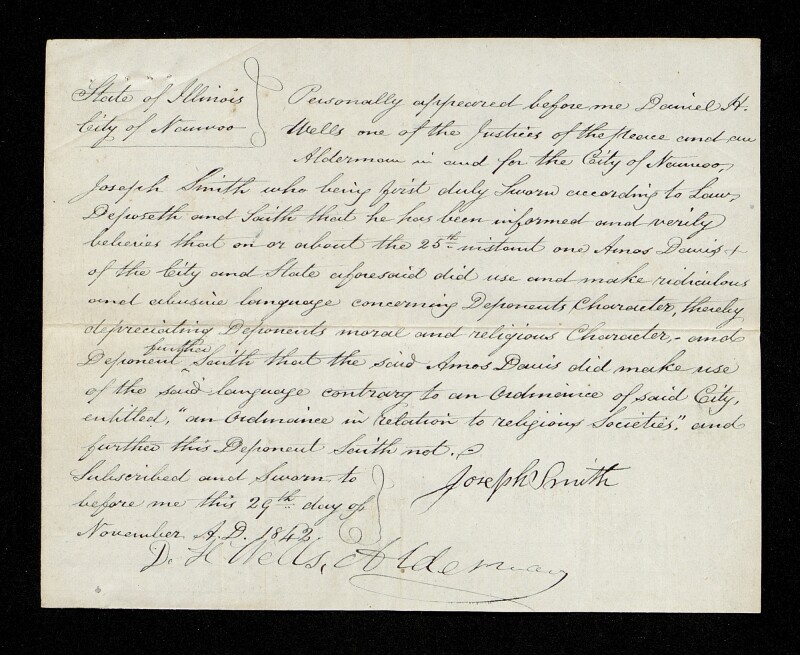 State of Illinois
City of Nauvoo
Personally appeared before me Daniel H.
Wells one of the Justices of the peace and an
Alderman in and for the City of Nauvoo,
Joseph Smith who being first duly Sworn according to Law,
Deposeth and Saith that he has been informed and verily
believes that on or about the 25th instant one Amos Davis +
of the City and State aforesaid did use and make ridiculous
and abusive language concerning Deponents Character, thereby
depreciating Deponents moral and religious Character,- and
further
Deponent ^ Saith that the said Amos Davis did make use
of the said language contrary to an Ordinence of said City,
entitled, "an Ordinance in relation to religious Societies," and
further this Deponent Saith not.
Subscribed and Sworn to
before me this 29th day of
November A.D. 1842
Joseph Smith
D. H Wells, Alderman